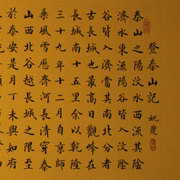 登泰山記 姚鼐
泰山之陽汶水西流其陰
濟水東流陽谷皆入汶陰
谷皆入濟當其南北分者
古長城也最高日觀峰在
長城南十五里余以乾隆
三十九年十二月自京師
乘風雪歷齊河長清穿泰
山西北谷越長城之限至
於泰安是月丁未與知府